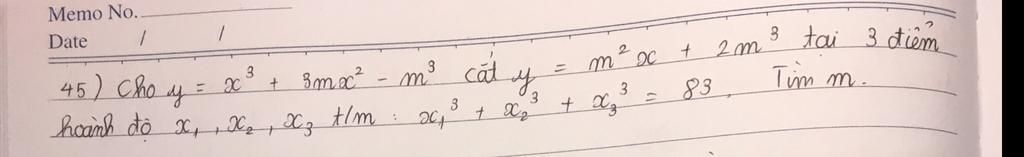 Memo No.
Date / /
45) Cho y = x³ + 3mx² - m³ cắt y = m²x + 2m³ tại 3 điểm
hoành độ x₁, x₂, x₃ t/m : x₁³ + x₂³ + x₃³ = 83. Tìm m.